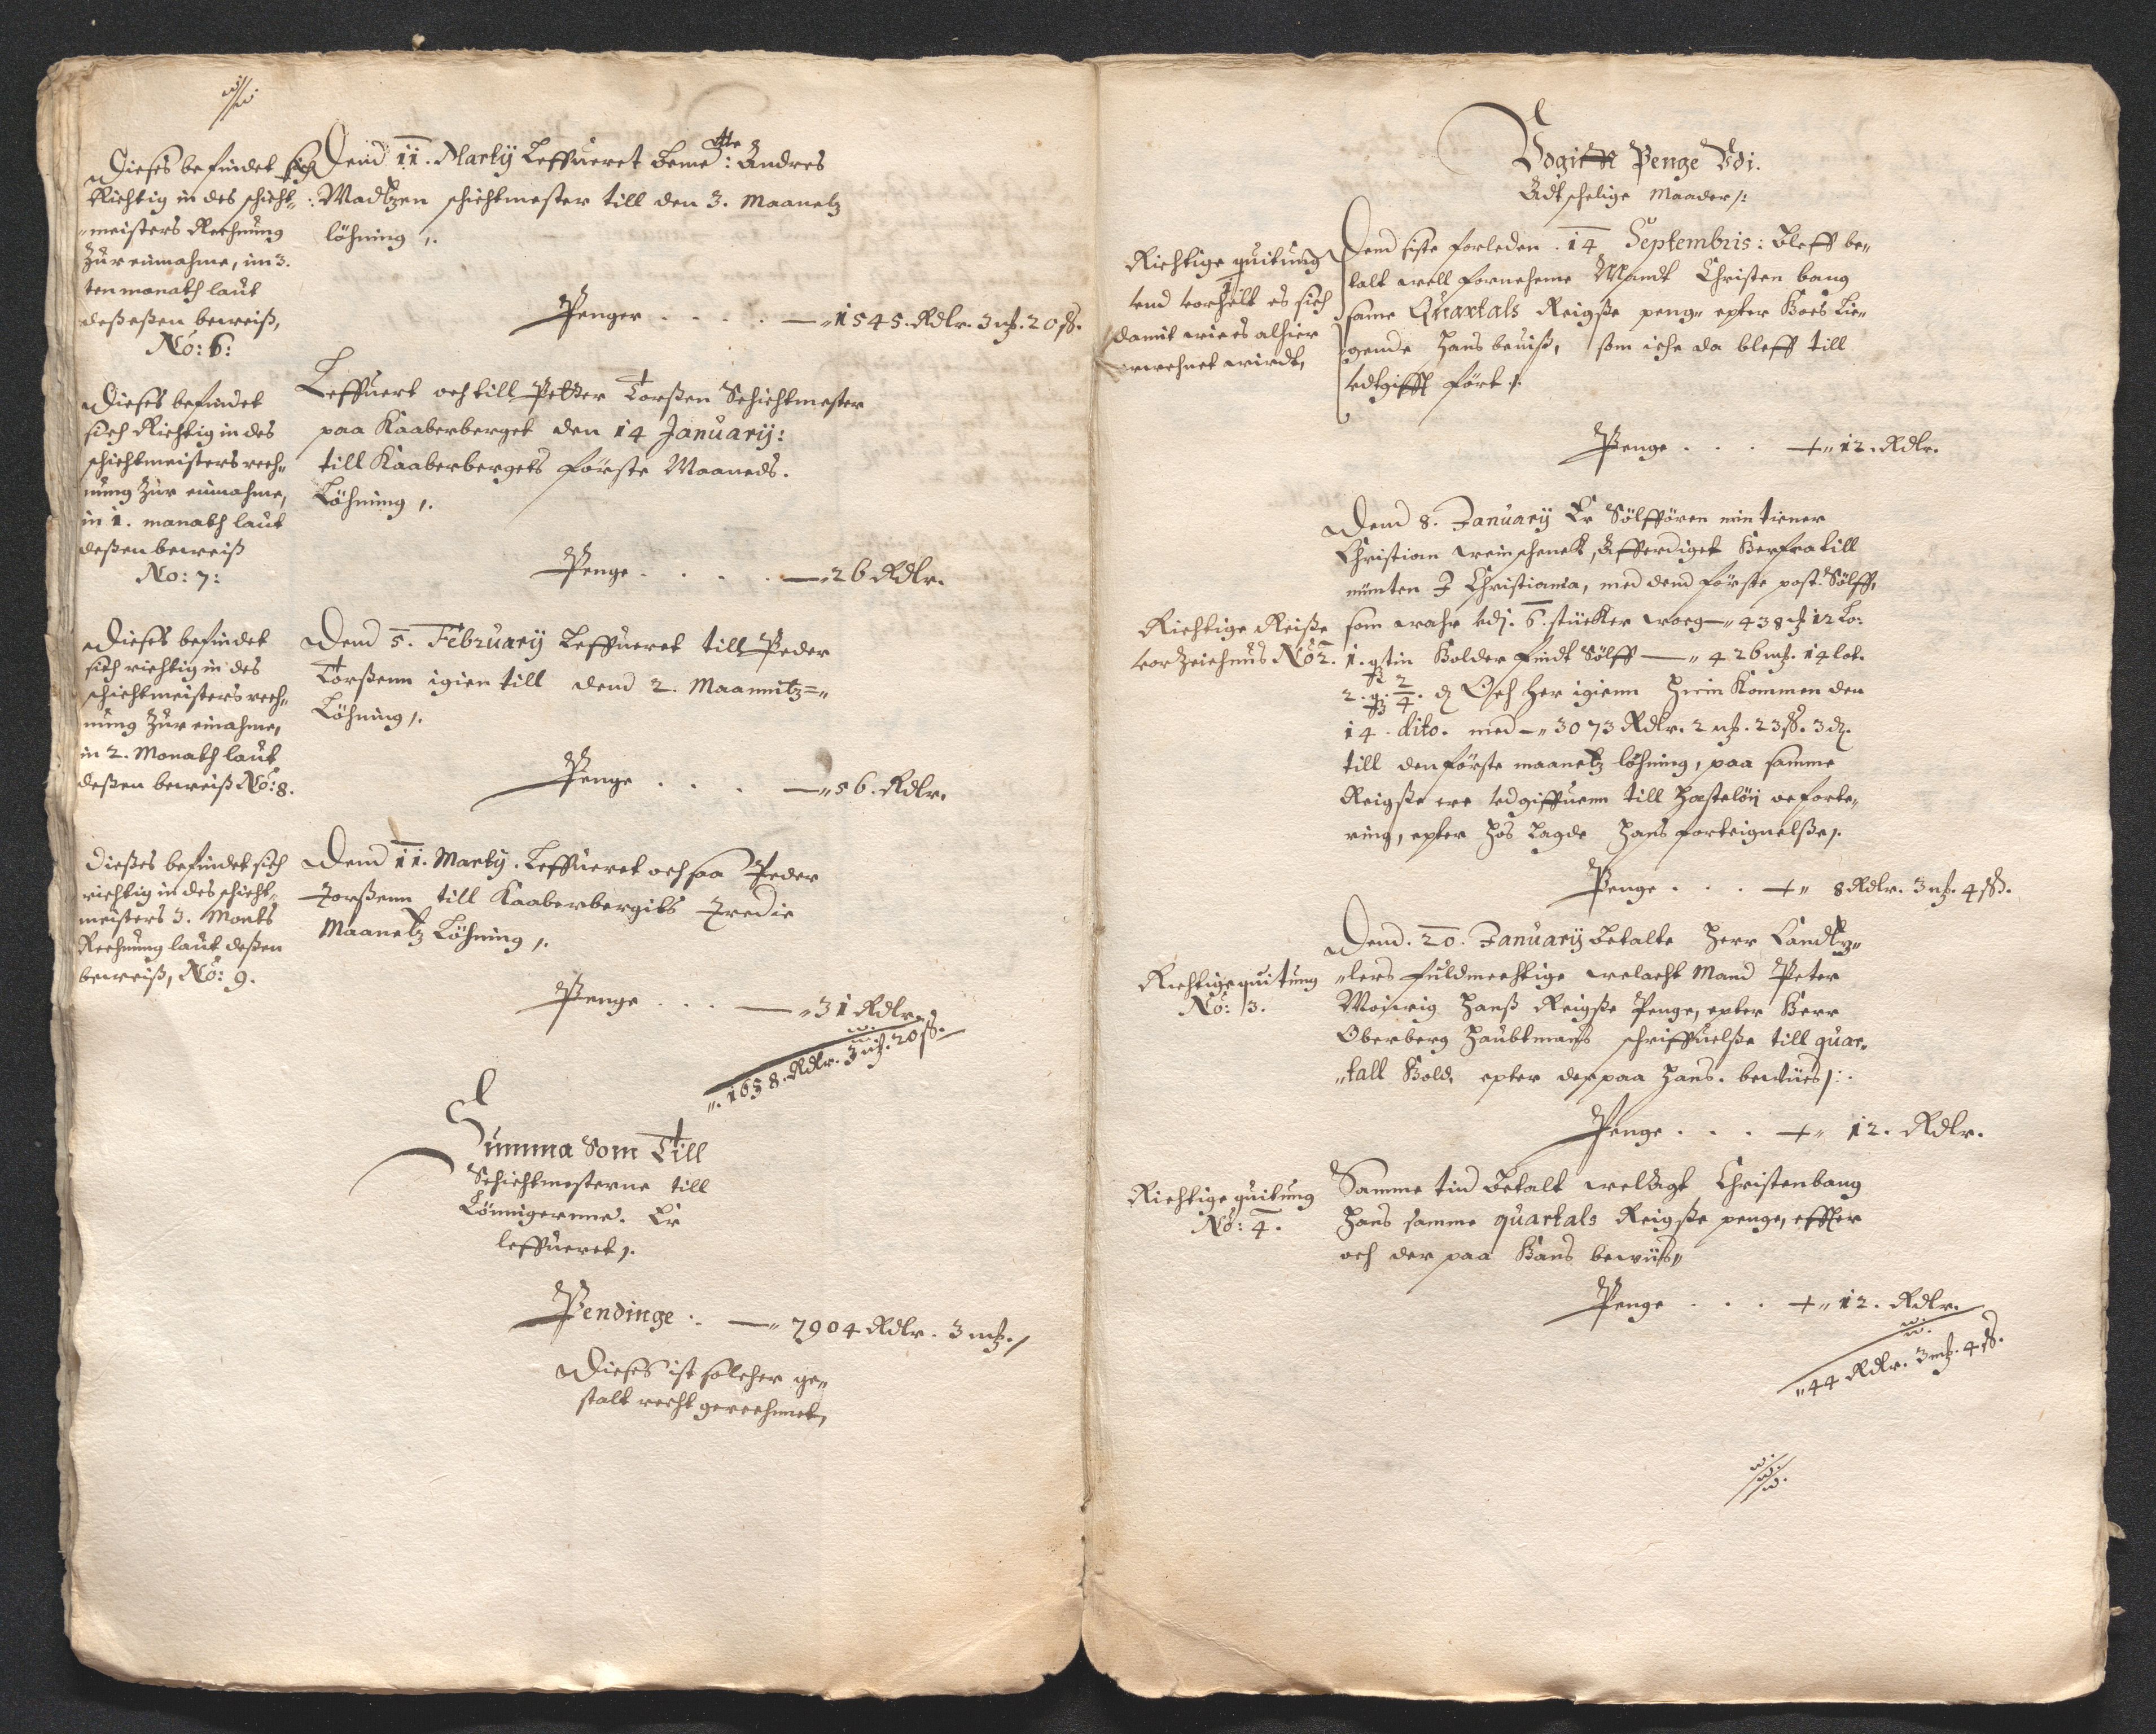 Dieses befindet sich
Richtig in des schicht„
„meisters Rechnung
Zur einnahme, im 3.
ten monath laut
deßeßen beweiß,
No: 6:
Dend 11. Martij Leffueret bemelte: Andres
: Madtzen schichtmester till den 3. Maanetz
löhning /.
Penger . . . . —„ 1545. Rdlr. 3 mk. 20 ß.
Dieses befindet
sich Richtig in des
schichtmeisters rech„
nung Zur einnahme,
in 1. monath laut
deßen beweiß
No: 7:
Leffuert och till Petter Torßen Schichtmester
paa Kaaberberget den 14 Januarij:
till Kaaberbergets förste Maaneds.
Löhning /.
Penge . . . . —„ 26 Rdlr.
Dieses befindet
sich richtig in des
schichtmeisters rech„
nung Zur einahme,
in 2. Monath laut
deßen beweiß No: 8.
Dend 5. February Leffueret till Peder
Torßenn igien till dend 2. Maannitz=„
Löhning /.
Penge . . . —„ 56. Rdlr.
Dießes befindet sich
richtig in des schicht„
meisters 3. Monts
Rechnung laut deßen
beweiß, No: 9.
Dend 11. Martij. Leffueret och saa Peder
Torßenn till Kaaberbergits Tredie
Maanetz Löhning /.
Penge . . . —„ 31 Rdlr.
„. 1658. Rdlr. 3 mk. 20 ß.
Summa Som Till
Schichtmesterne till
Lönnigernne. Er
leffueret /.
Pendinge . —„ 7904 Rdlr. 3 mk. /
Dieses ist solcher ge„
stalt recht gerechnet,
Penge Vdi.
Adtschelige Maader /:
Richtige quitung
1
vnd vorhelt es sich
damit wie es alhier
erwehnet wirdt,
Dend siste forleden . 14 Septembris: Bleff be„
talt well fornehme Mandt Christen bang
same Quartals Reigße peng„ epter Hoes Lie„
gende Hans beuiß, som iche da bleff till
vdtgifft fört /.
Penge . . . +„ 12. Rdlr.
Richtige Reiße
vorZeichnus No 2.
Dend 8. January Er Sölffören min tiener
Christian weinschenck, Afferdiget Herfra till
münten I Christiania, med dend förste post Sölff,
som wahr vdj. 6. stücker woeg —„ 438 mk 12 Lo:
1. qtin Holder findt Sölff —„ 426 mk. 14 lot.
2. q. 2/4. d Och her igienn Hiem Kommen den
14. dito. med —„ 3073 Rdlr. 2 mk. 23 ß. 3 d.
till den förste maanetz löhning, paa samme
Reigße ere vdgiffuenn till Hesteløn oc forte„
ring, epter Hos Lagde Hans forteignelße /.
Penge . . . +„ 8 Rdlr. 3 mk. 4 ß.
Richtige quitung
No: 3.
Dend. 20. January Betalte Herr Landtz„
„lers fuldmechtige welacht Mand Peter
Hanß Reigße Penge, epter Herr
Oberberg Haubtmans schriffuelße till quar„
„tall Hold, epter der paa Hans. beuiis /:.
Penge . . . +„ 12. Rdlr.
Richtige quitung
No: 4.
Samme tid Betalt welagt Christen bang
Hans samme quartals Reigße penge, effter
och der paa Hans bewiis„
Penge . . . +„ 12. Rdlr.
„ 44 Rdlr. 3 mk. 4 ß.